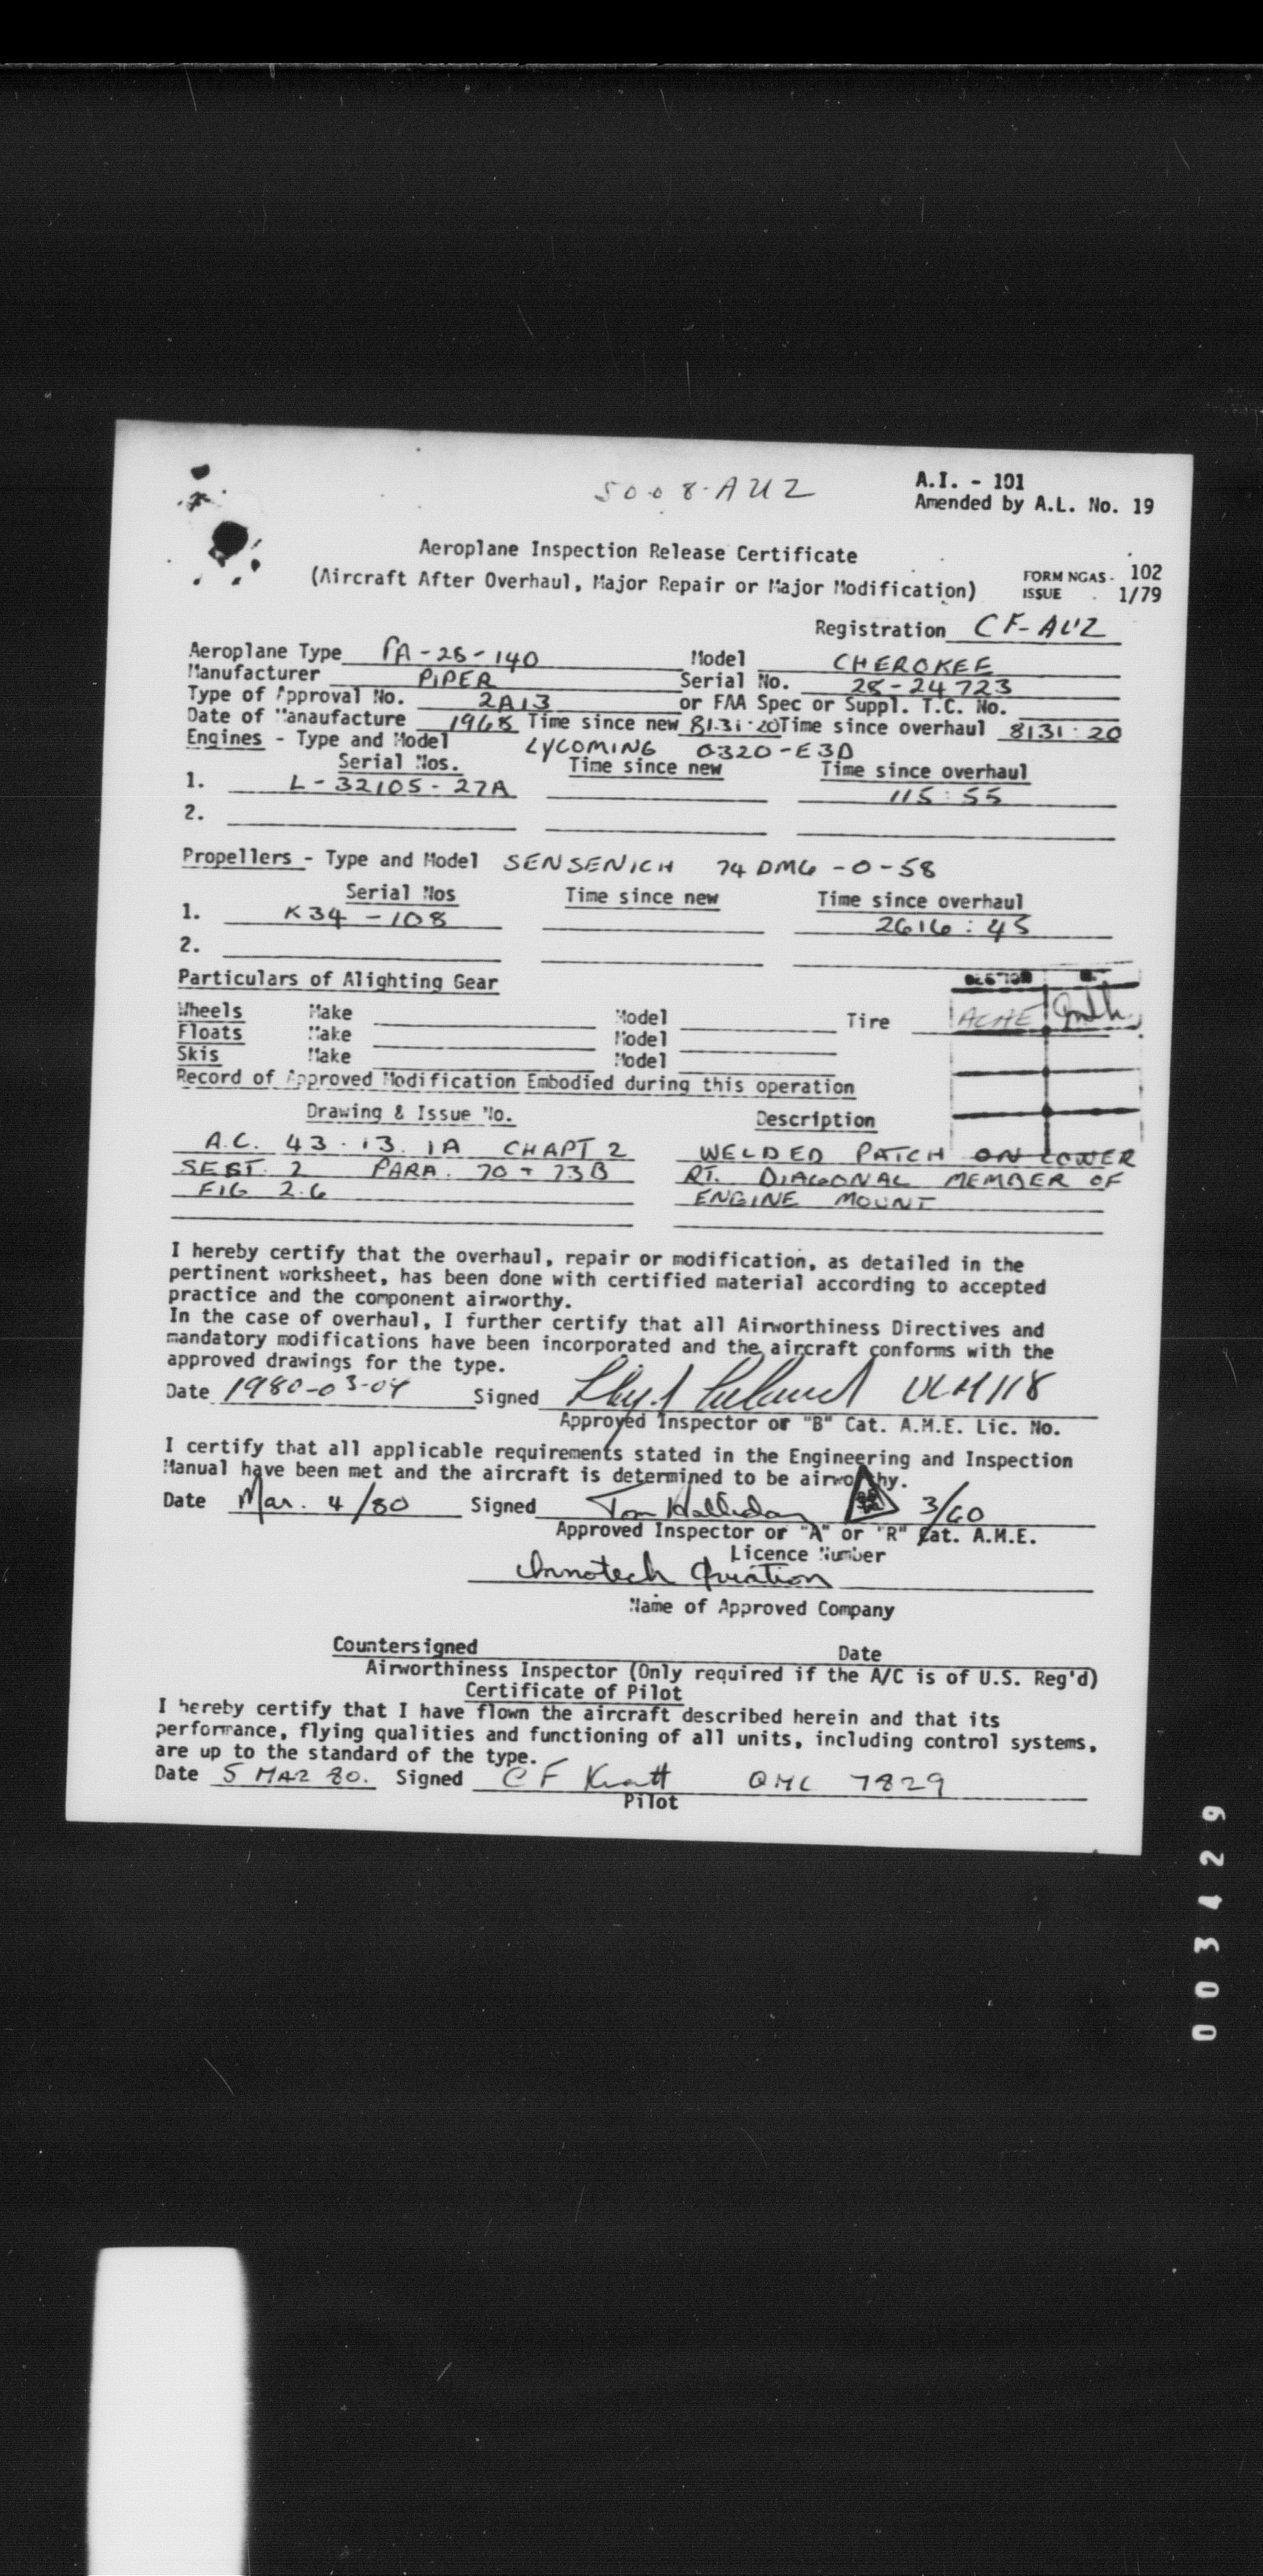 5008-AUZ
A.I. - 101
Amended by A.L. No. 19
Aeroplane Inspection Release Certificate
(Aircraft After Overhaul, Major Repair or Major Modification)
FORM NGAS - 102
ISSUE 1/79
Registration CF-AUZ
Aeroplane Type PA-28-140 Model CHEROKEE
Manufacturer PIPER Serial No. 28-24723
Type of Approval No. 2A13 or FAA Spec or Suppl. T.C. No.
Date of Manaufacture 1968 Time since new 8131:20 Time since overhaul 8131:20
Engines - Type and Model LYCOMING O320-E3D
Serial Nos. Time since new Time since overhaul
1. L-32105-27A 115:55
2.
Propellers - Type and Model SENSENICH 74DM6-0-58
Serial Nos Time since new Time since overhaul
1. K34-108 2616:45
2.
Particulars of Alighting Gear
SECTION
Wheels Make Model Tire ACHE
Floats Make Model
Skis Make Model
Record of Approved Modification Embodied during this operation
Drawing & Issue No. Description
A.C. 43.13.1A CHAPT 2 WELDED PATCH ON LOWER
SECT. 2 PARA. 70 + 73B RT. DIAGONAL MEMBER OF
FIG 2.6 ENGINE MOUNT
I hereby certify that the overhaul, repair or modification, as detailed in the
pertinent worksheet, has been done with certified material according to accepted
practice and the component airworthy.
In the case of overhaul, I further certify that all Airworthiness Directives and
mandatory modifications have been incorporated and the aircraft conforms with the
approved drawings for the type.
Date 1980-03-04 Signed
Approved Inspector or "B" Cat. A.M.E. Lic. No.
I certify that all applicable requirements stated in the Engineering and Inspection
Manual have been met and the aircraft is determined to be airworthy.
Date Mar. 4/80 Signed Tom Halliday 3/60
Approved Inspector or "A" or "R" Cat. A.M.E.
Licence Number
Innotech Aviation
Name of Approved Company
Countersigned Date
Airworthiness Inspector (Only required if the A/C is of U.S. Reg'd)
Certificate of Pilot
I hereby certify that I have flown the aircraft described herein and that its
performance, flying qualities and functioning of all units, including control systems,
are up to the standard of the type.
Date 5 MAR 80. Signed C F 7829
Pilot
003429